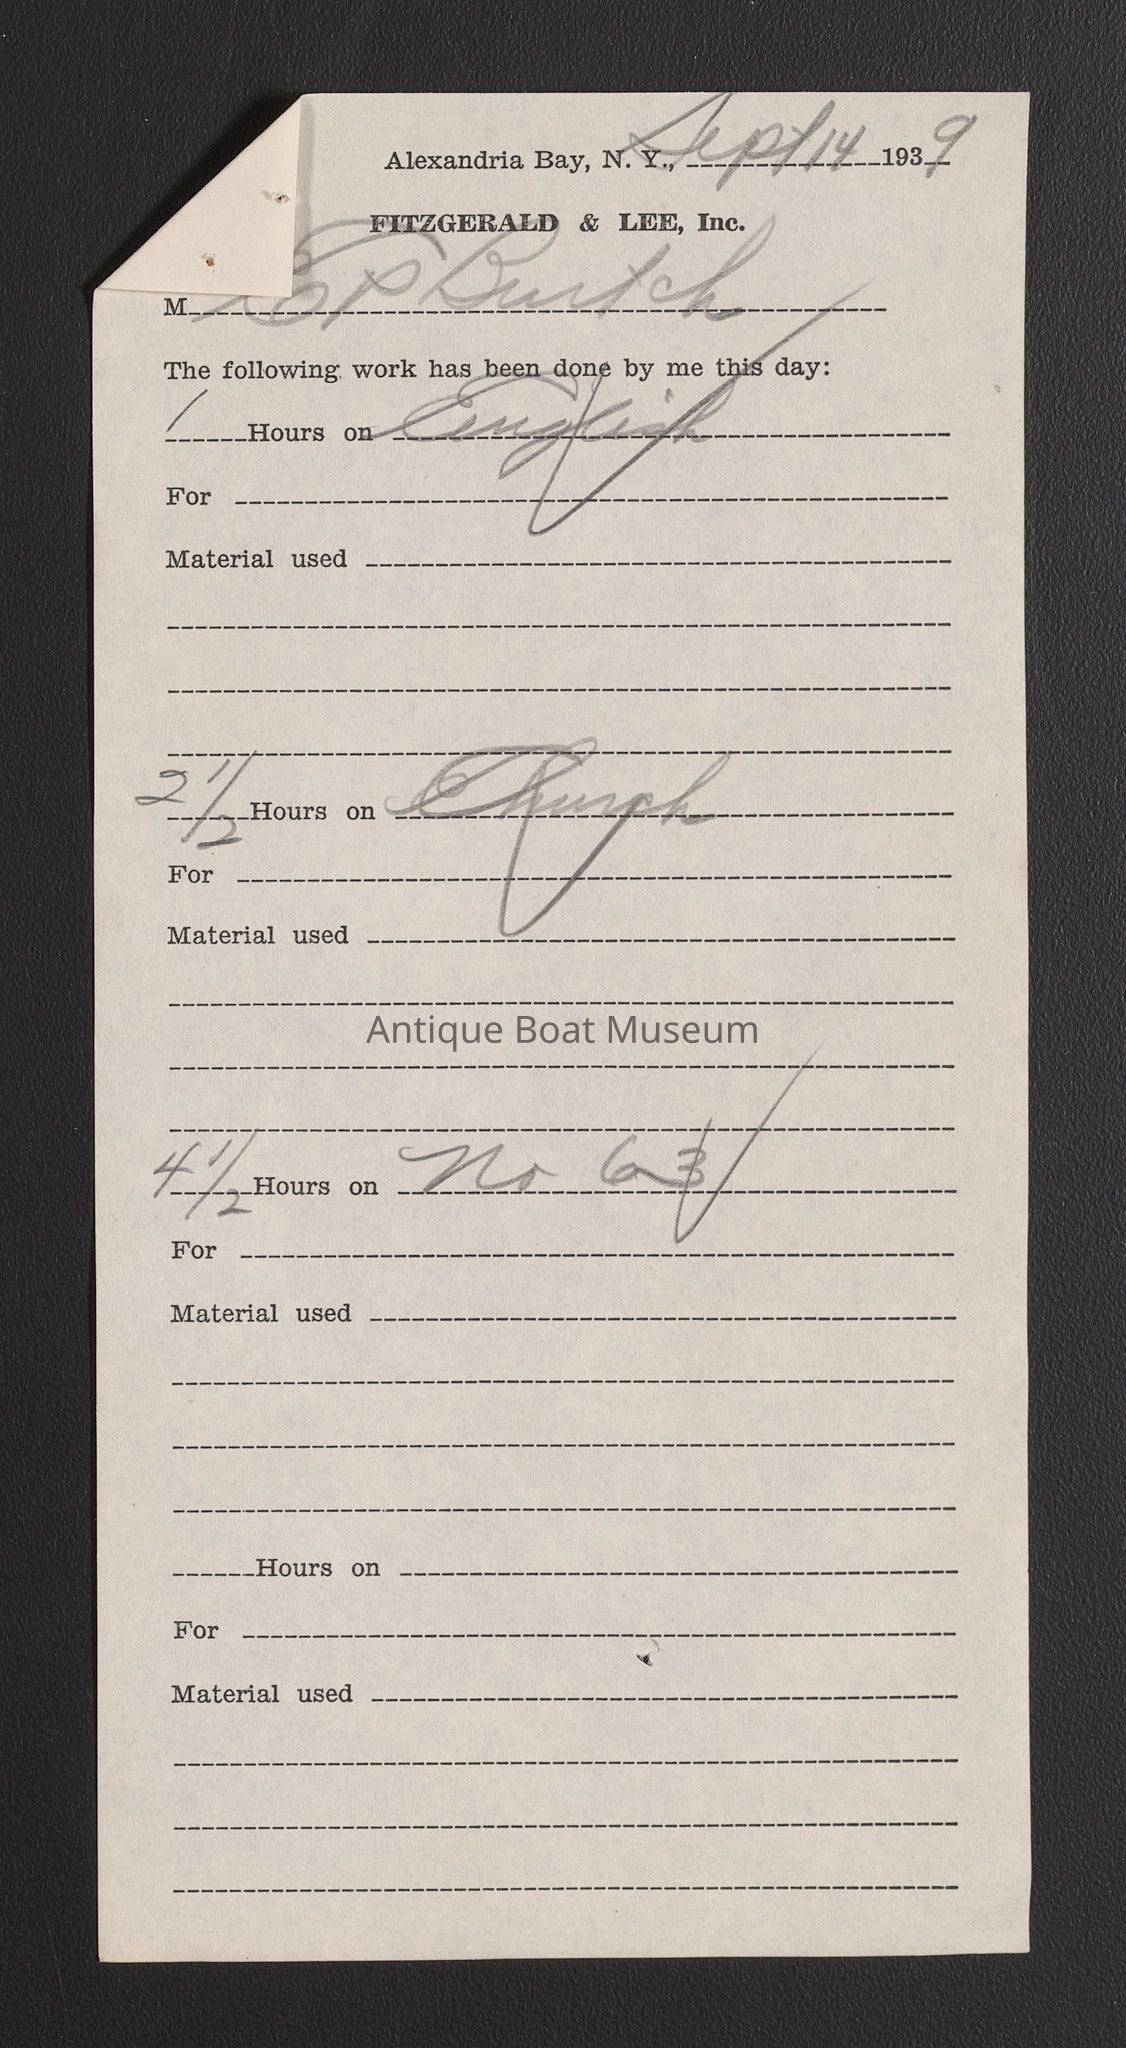 Alexandria Bay, N. Y., Sept 14 1939
FITZGERALD & LEE, Inc.
M Burtch
The following work has been done by me this day:
1 Hours on English
For
Material used
2 1/2 Hours on Church
For
Material used
Antique Boat Museum
4 1/2 Hours on No 63
For
Material used
Hours on
For
Material used